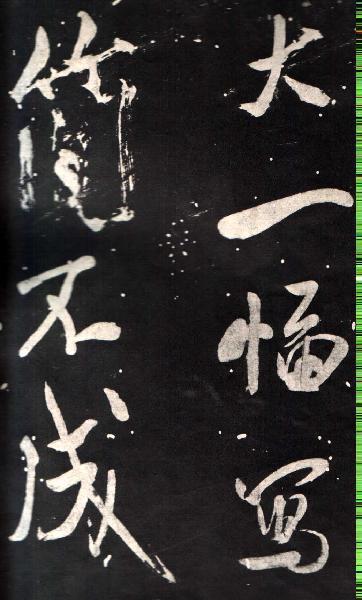 大一幅写
简不成